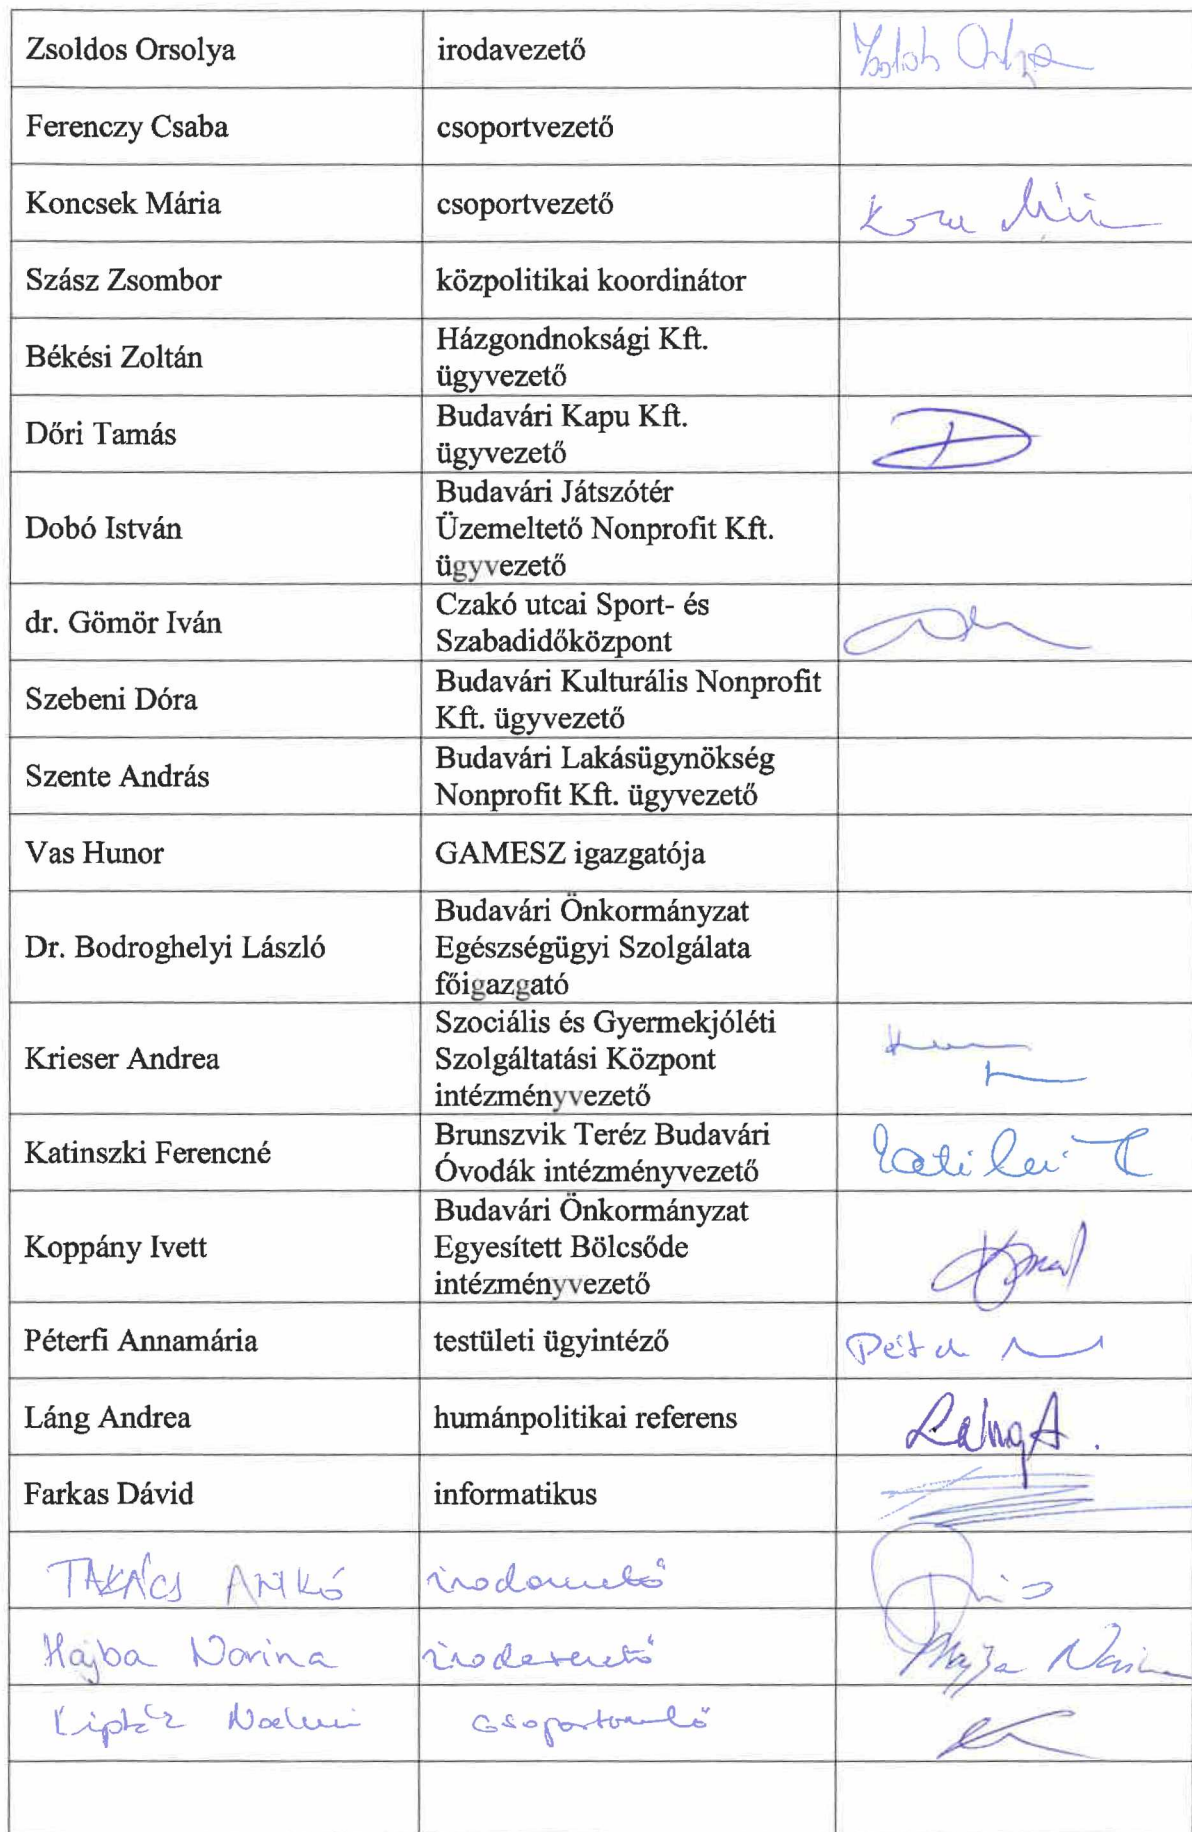 Zsoldos Orsolya irodavezető
Ferenczy Csaba csoportvezető
Koncsek Mária csoportvezető
Szász Zsombor közpolitikai koordinátor
Békési Zoltán
Házgondnoksági Kft.
ügyvezető
Dőri Tamás
Budavári Kapu Kft.
ügyvezető
Dobó István
Budavári Játszótér
Üzemeltető Nonprofit Kft.
ügyvezető
dr. Gömör Iván
Czakó utcai Sport- és
Szabadidőközpont
Szebeni Dóra
Budavári Kulturális Nonprofit
Kft. ügyvezető
Szente András
Budavári Lakásügynökség
Nonprofit Kft. ügyvezető
Vas Hunor GAMESZ igazgatója
Dr. Bodroghelyi László
Budavári Önkormányzat
Egészségügyi Szolgálata
főigazgató
Krieser Andrea
Szociális és Gyermekjóléti
Szolgáltatási Központ
intézményvezető
Katinszki Ferencné
Brunszvik Teréz Budavári
Óvodák intézményvezető
Koppány Ivett
Budavári Önkormányzat
Egyesített Bölcsőde
intézményvezető
Péterfi Annamária testületi ügyintéző
Láng Andrea humánpolitikai referens Láng A.
Farkas Dávid informatikus
TAKÁCS ANIKÓ irodavezető
Hajba Norina irodavezető Hajba Norina
csoportvezető